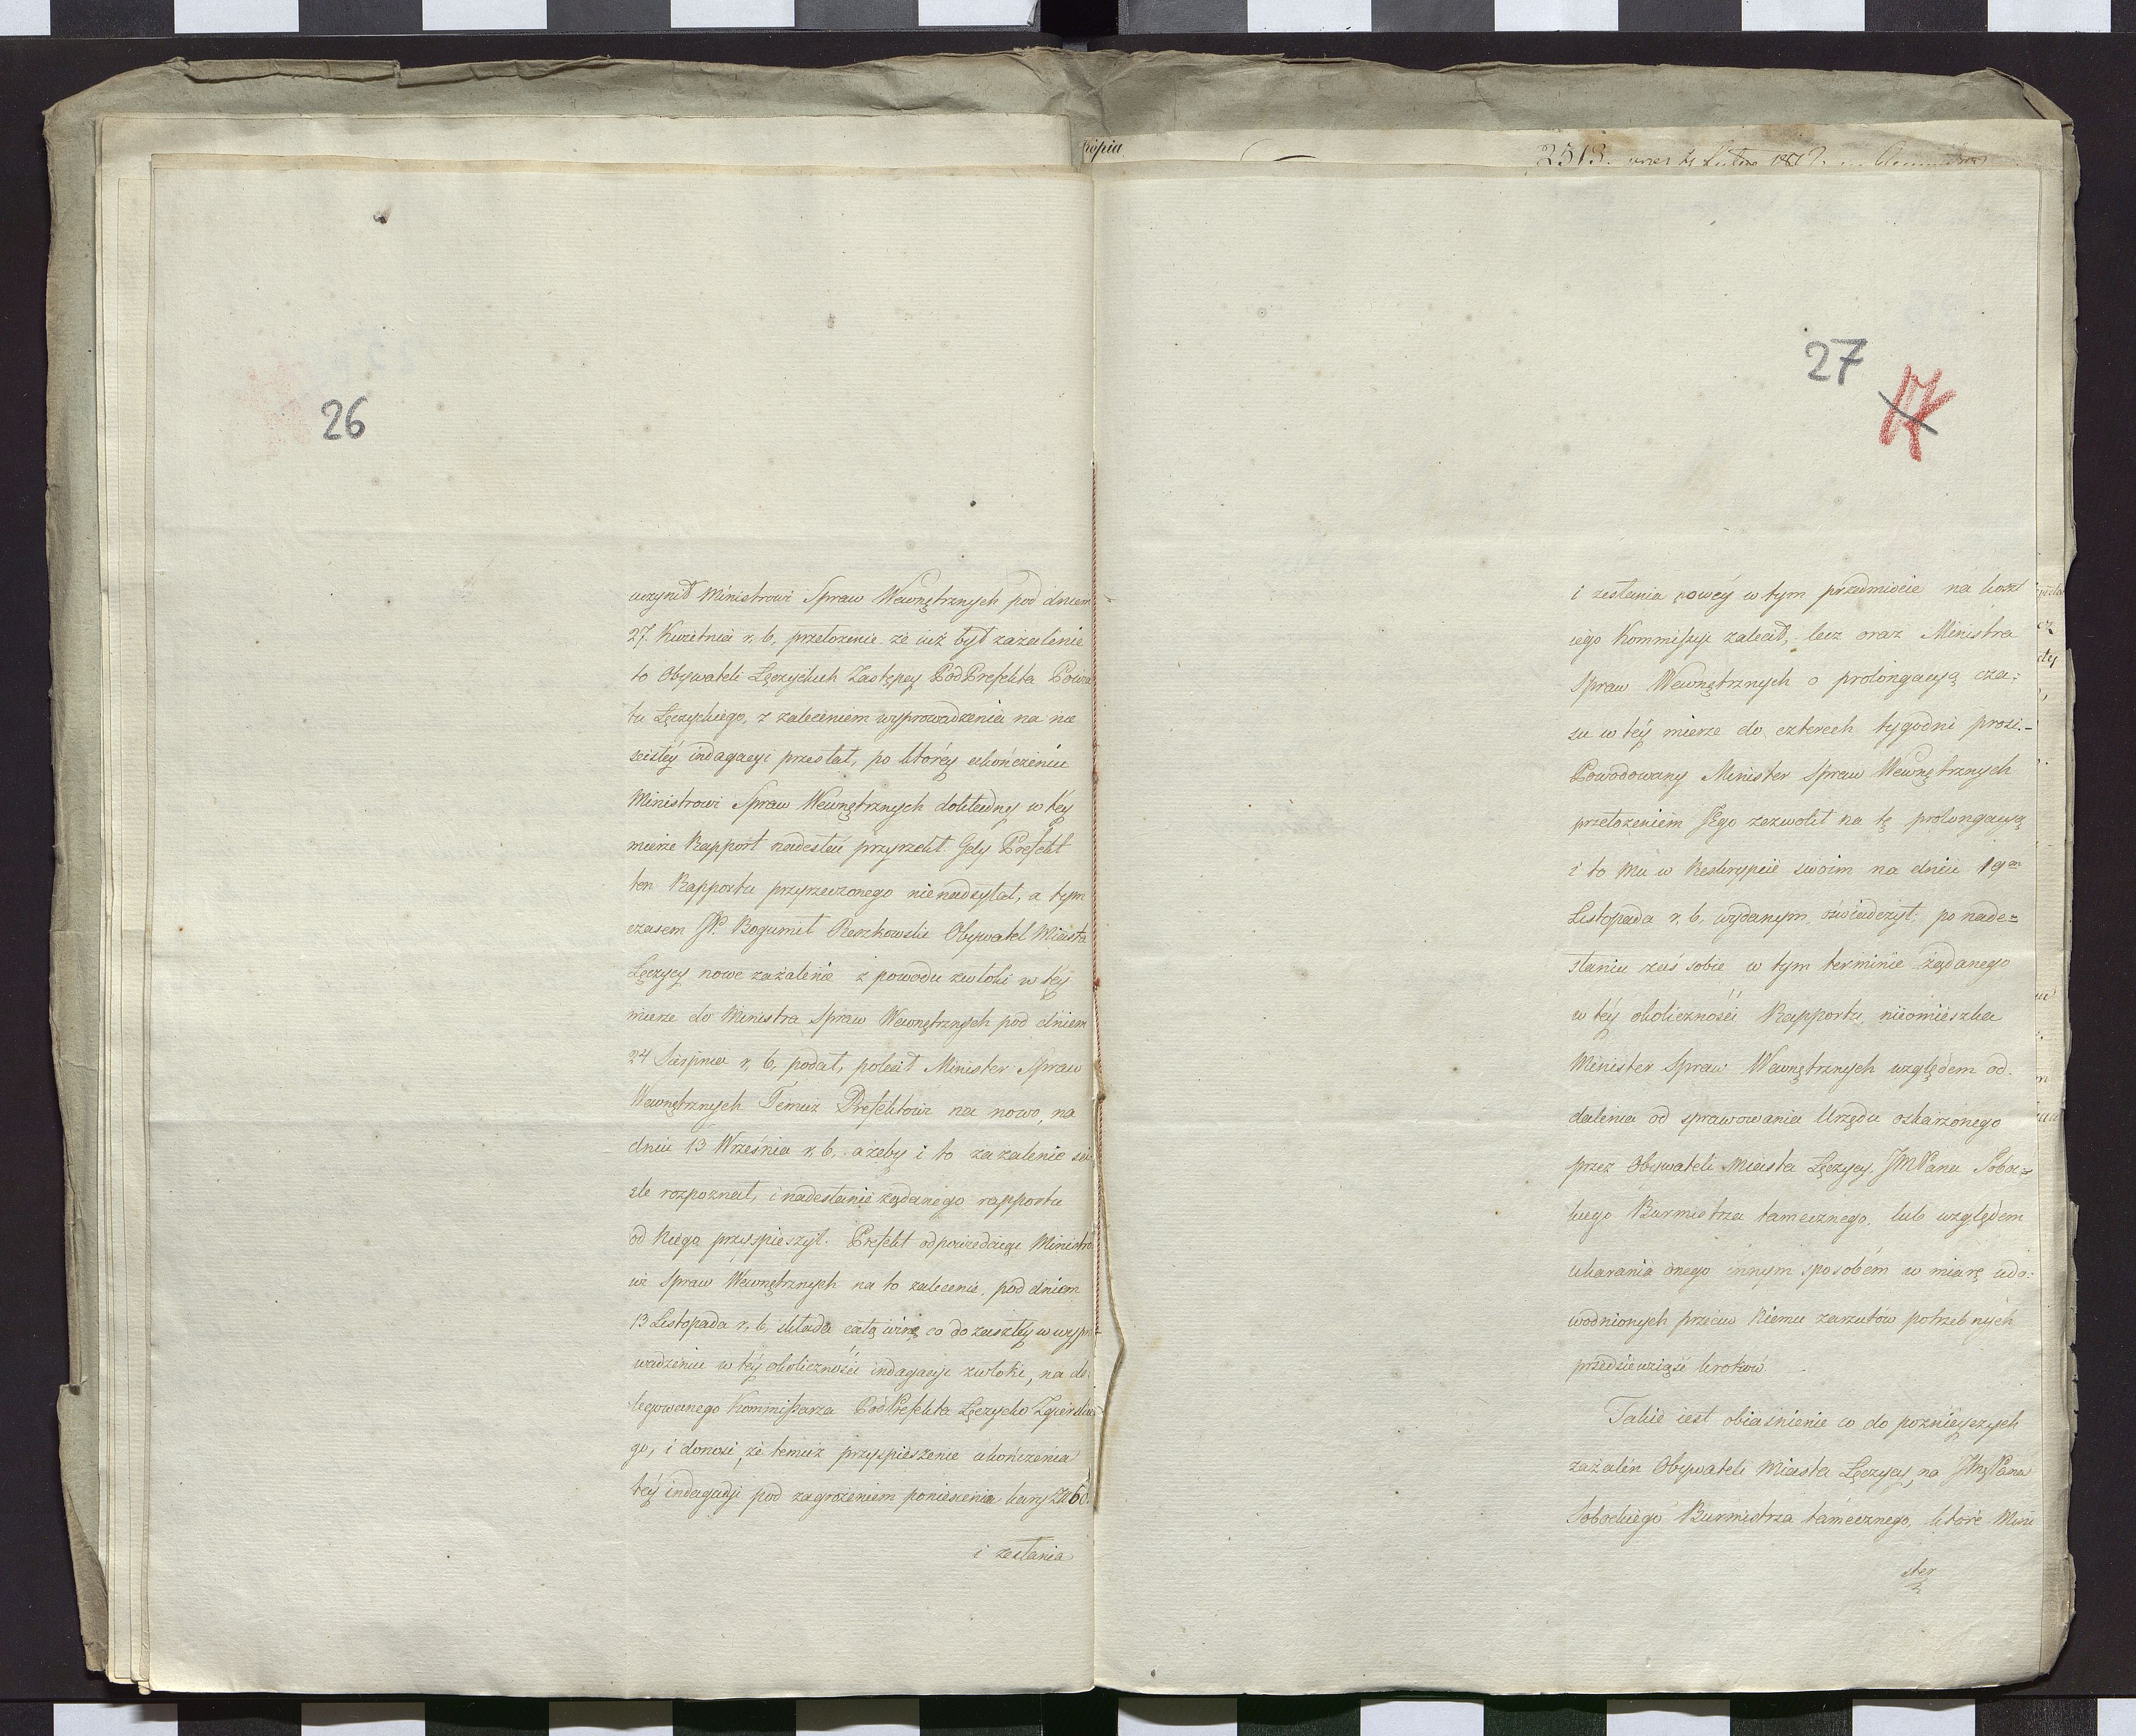 Kopia
2513.
26
uczynił Ministrowi Spraw Wewnętrznych pod dniem
27. Kwietnia r. b. przełożenie że iuż był zażalenie
to Obywateli Łęczyckich Zastępcy PodPrefekta Powia
tu Łęczyckiego, z zaleceniem wyprowadzenia na nie
ścisłéy indagacyi przesłał, po któréy ukończeniu
Ministrowi Spraw Wewnętrznych dokładny w téy
mierze Rapport nadesłać przyrzekł. Gdy Prefekt
ten Rapportu przyrzeczonego nienadsyłał, a tym
czasem JP. Bogumił Reszkowski Obywatel Miasta
Łęczycy nowe zażalenie z powodu zwłoki w téy
mierze do Ministra Spraw Wewnętrznych pod dniem
24 Sierpnia r. b. podał, polecił Minister Spraw
Wewnętrznych Temuż Prefektowi na nowo, na
dniu 13 Września r. b. ażeby i to zażalenie ści
śle rozpoznał, i nadesłanie żądanego rapportu
od Niego przyspieszył. Prefekt odpowiedaiąc Ministro
wi Spraw Wewnętrznych na to zalecenie, pod dniem
13 Listopada r. b. składa całą winę co do zaszłéy w wypro
wadzeniu w téy okoliczności indagacyi zwłoki, na de
legowanego Kommissarza PodPrefekta Łęczycko Zgierskie
go, i donosi, że temuż przyspieszenie ukończenia
téy indagacyi pod zagrożeniem poniesienia kary Zł 60.
i zesłania
27
17
i zesłania nowéy w tym przedmiocie na koszt
iego Kommissyi zalecił, lecz oraz Ministra
Spraw Wewnętrznych o prolongacyą cza-
su w téy mierze do czterech tygodni prosi.-
Powodowany Minister Spraw Wewnętrznych
przełożeniem Jego zezwolił na tę prolongacyą
i to mu w Reskrypcie swoim na dniu 19go
Listopada r. b. wydanym oświadczył; po nade-
słaniu zaś sobie w tym terminie żądanego
w téy okoliczności Rapportu, nieomieszka
Minister Spraw Wewnętrznych względem od-
dalenia od sprawowania Urzędu oskarżonego
przez Obywateli miasta Łęczycy, JMPana Sobo-
kiego Burmistrza tamecznego, lub względem
ukarania onego innym sposobem w miarę udo-
wodnionych przeciw Niemu zarzutów potrzebnych
przedsięwziąść kroków.
Takie iest obiaśnienie co do poźnieyszych
zażaleń Obywateli Miasta Łęczycy, na JMPana
Sobockiego Burmistrza tamecznego, które Mini
ster